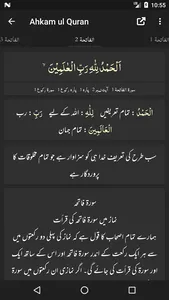 10:55
Ahkam ul Quran
الفاتحة 1
الفاتحة 2
اَلْحَمْدُ لِلّٰهِ رَبِّ الْعٰلَمِيْنَ
اَلْحَمْدُ : تمام تعریفیں لِلّٰهِ : اللہ کے لیے رَبِّ : رب
الْعَالَمِيْنَ : تمام جہان
سب طرح کی تعریف خدا ہی کو سزاوار ہے جو تمام مخلوقات کا
پروردگار ہے
سورۃ فاتحہ
نماز میں سورۃ فاتحہ کی قرأت
ہمارے تمام اصحاب کا قول ہے کہ نماز کی پہلی دو رکعتوں میں
سے ہر ایک رکعت کے اندر سورۃ فاتحہ اور اس کے ساتھ ایک اور
سورت کی قرأت کی جائے گی۔ اگر نمازی ان رکعتوں میں سورۃ